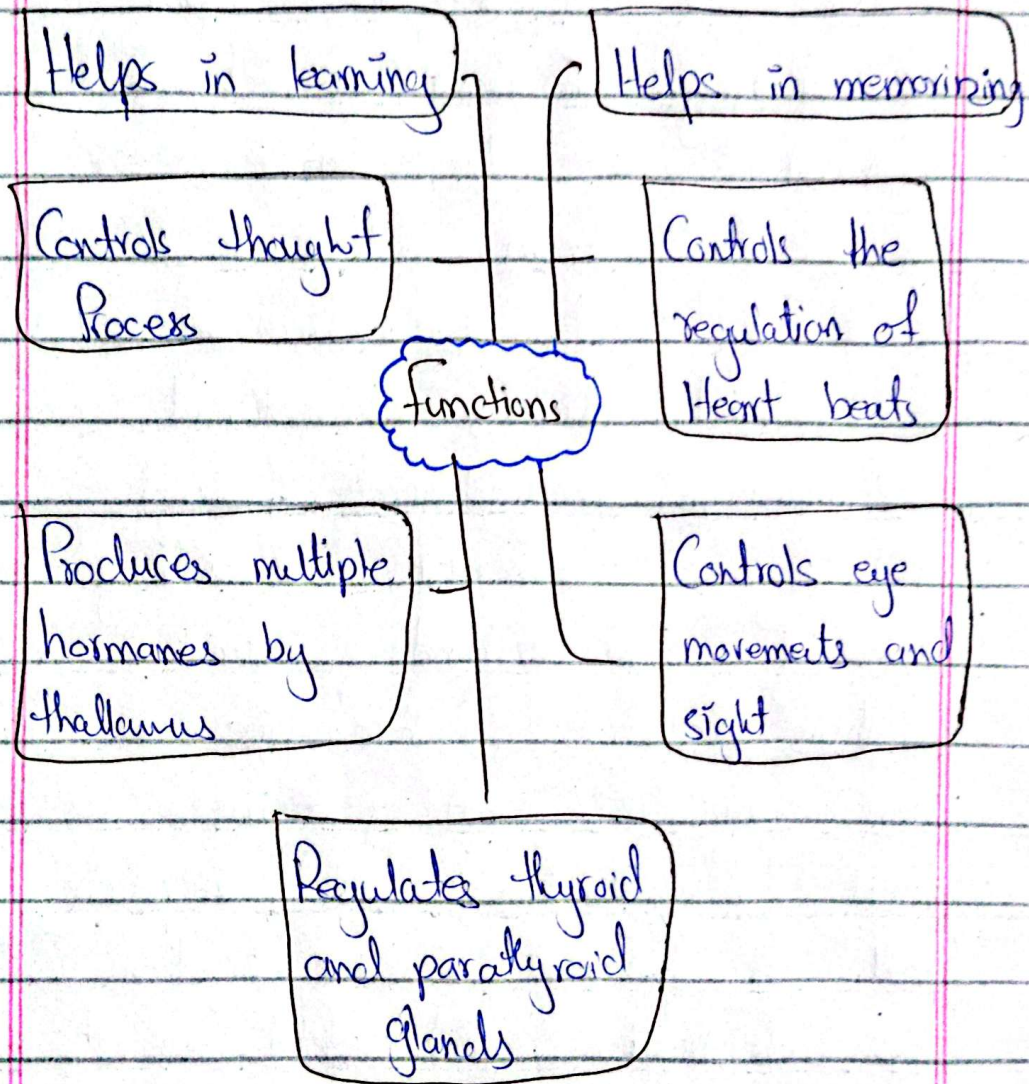 Helps in learning
Helps in memorizing
Controls thought
Process
Controls the
regulation of
Heart beats
functions
Produces multiple
hormanes by
thallamus
Controls eye
movements and
sight
Regulates thyroid
and parathyroid
glands